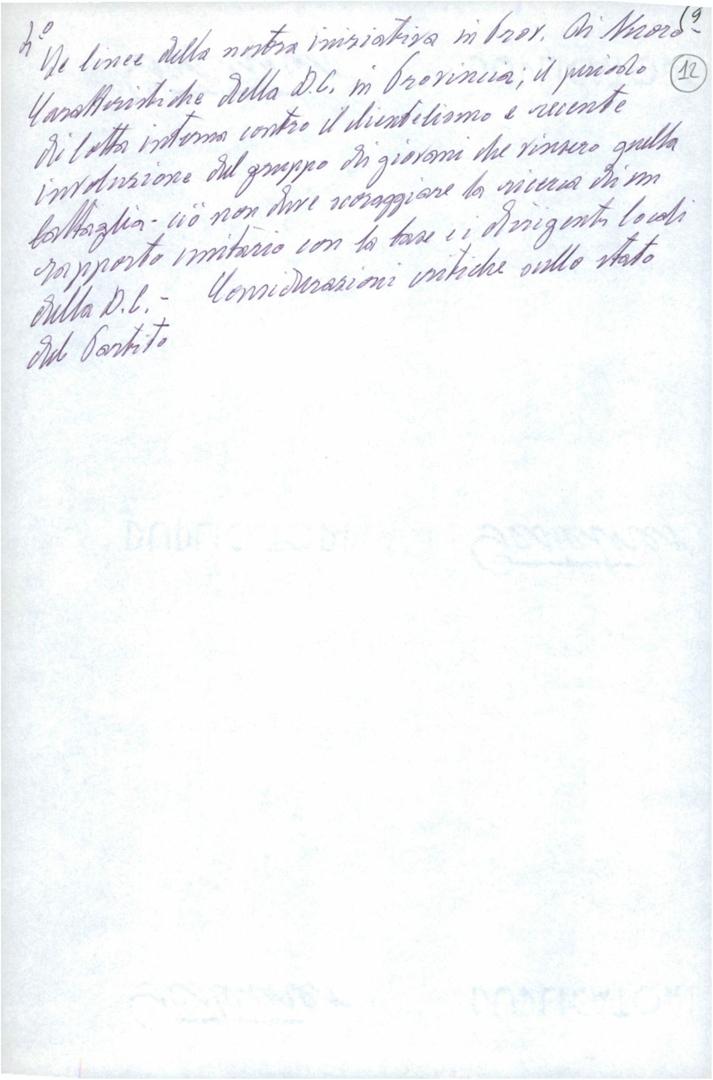 (9
12
2º
Le linee della nostra iniziativa in Prov. di Nuoro-
Caratteristiche della D.C. in Provincia; il periodo
di lotta interna contro il clientelismo e recente
involuzione del gruppo di giovani che vinsero quella
battaglia - ciò non deve scoraggiare la ricerca di un
rapporto unitario con la base e i dirigenti locali
della D.C. - Considerazioni critiche sullo stato
del Partito